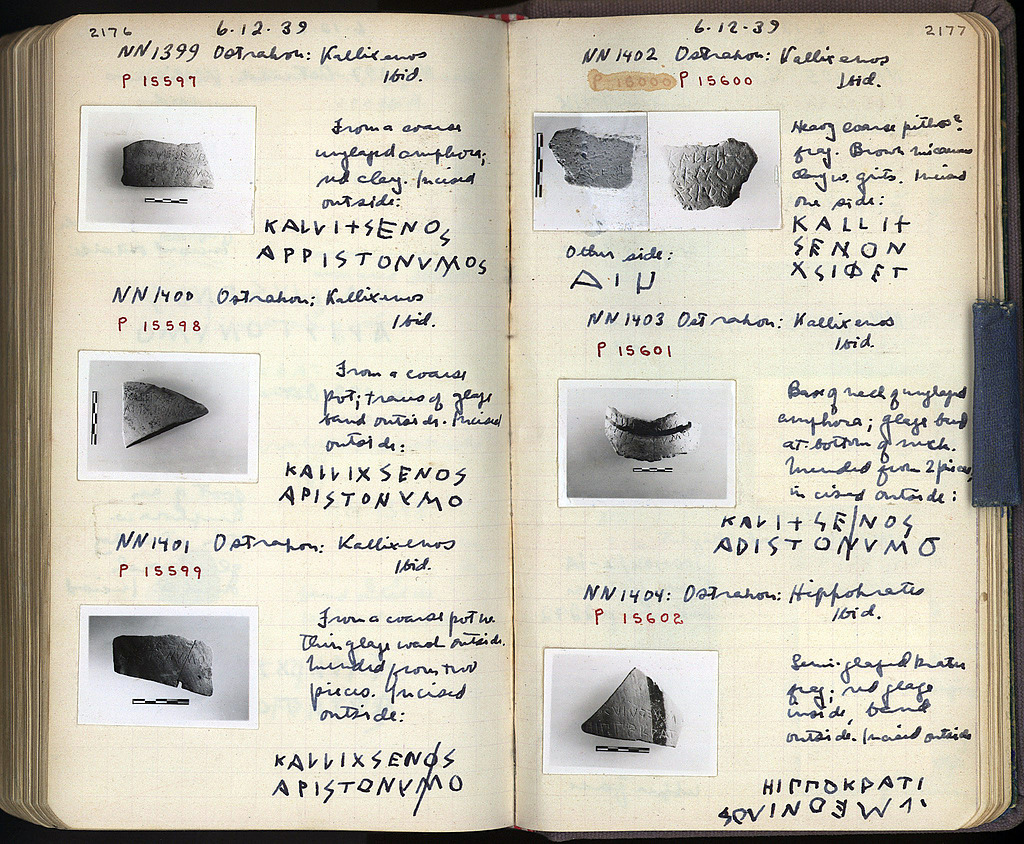 2176
6.12.39
NN1399 Ostrakon: Kallixenos
Ibid.
P 15597
From a coarse
unglazed amphora;
red clay. Incised
outside:
KALVI+SENOS
APPISTONVMOS
NN1400 Ostrakon: Kallixenos
Ibid.
P 15598
From a coarse
pot; traces of glaze
band outside. Incised
outside:
KALLIXSENOS
APISTONVMO
NN1401 Ostrakon: Kallixenos
Ibid.
P 15599
From a coarse pot w.
thin glaze wash outside.
Mended from two
pieces. Incised
outside:
KALLIXSENO/S
APISTONVM/O
2177
6-12-39
NN1402 Ostrakon: Kallixenos
Ibid.
P 16000 P 15600
Heavy coarse pithos?
frag. Brown micaceous
clay w. grits. Incised
one side:
KALLI+
SENON
XSIΦET
Other side:
NN1403 Ostrakon: Kallixenos
Ibid.
P 15601
Base of neck of unglazed
amphora; glaze band
at bottom of neck.
Mended from 2 pieces,
incised outside:
KALI+SE/NOS
ADISTO/NVMO
NN1404: Ostrakon: Hippokrates
Ibid.
P 15602
Semi-glazed krater
frag; red glaze
inside, band
outside. Incised outside
HIΠΠOKPATI